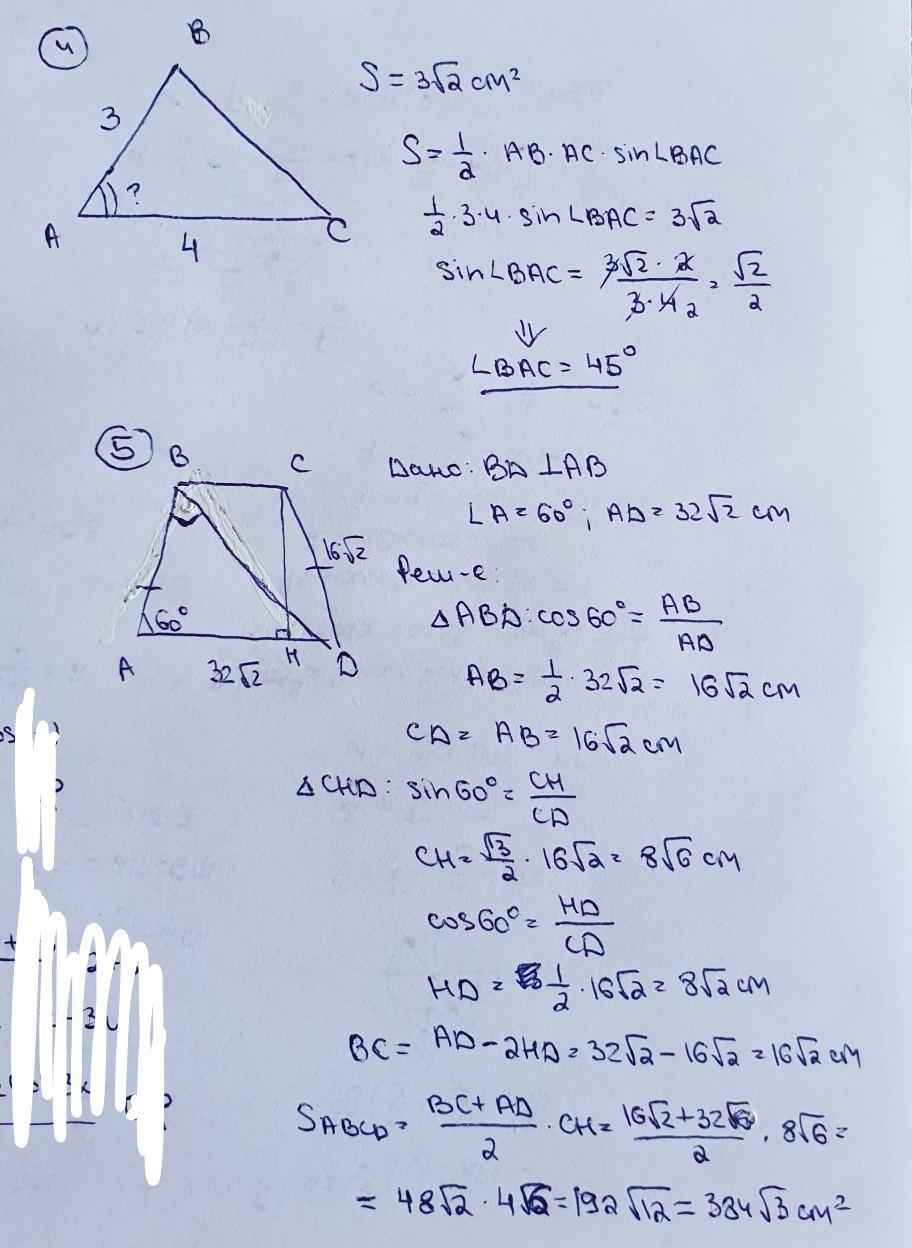 4
B
3
?
A
4
C
S = 3√2 cm²
S = 1/2 · AB · AC · sin∠BAC
1/2 · 3 · 4 · sin∠BAC = 3√2
sin∠BAC = 3√2 · 2 / 3 · 4 2 = √2/2
⇓
∠BAC = 45°
5
B
C
16√2
60°
A
32√2
H
D
Дано: BD ⊥ AB
∠A = 60°; AD = 32√2 cm
Реш-е:
△ABD: cos60° = AB/AD
AB = 1/2 · 32√2 = 16√2 cm
CD = AB = 16√2 cm
△CHD: sin60° = CH/CD
CH = √3/2 · 16√2 = 8√6 cm
cos60° = HD/CD
HD = 1/2 · 16√2 = 8√2 cm
BC = AD - 2HD = 32√2 - 16√2 = 16√2 cm
S ABCD = BC + AD / 2 · CH = 16√2 + 32√ / 2 · 8√6 =
= 48√2 · 4√6 = 192√12 = 384√3 cm²